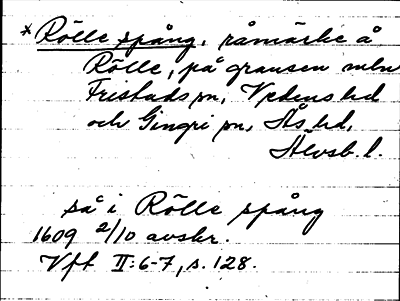 *Rölle spång, råmärke å
Rölle, på gränsen mln
Fristads sn, Vedens hd
och Gingri sn, Ås hd,
Älvsb. l.
så i Rölle spång
1609 2/10 avskr.
Vft II:6-7, s. 128.